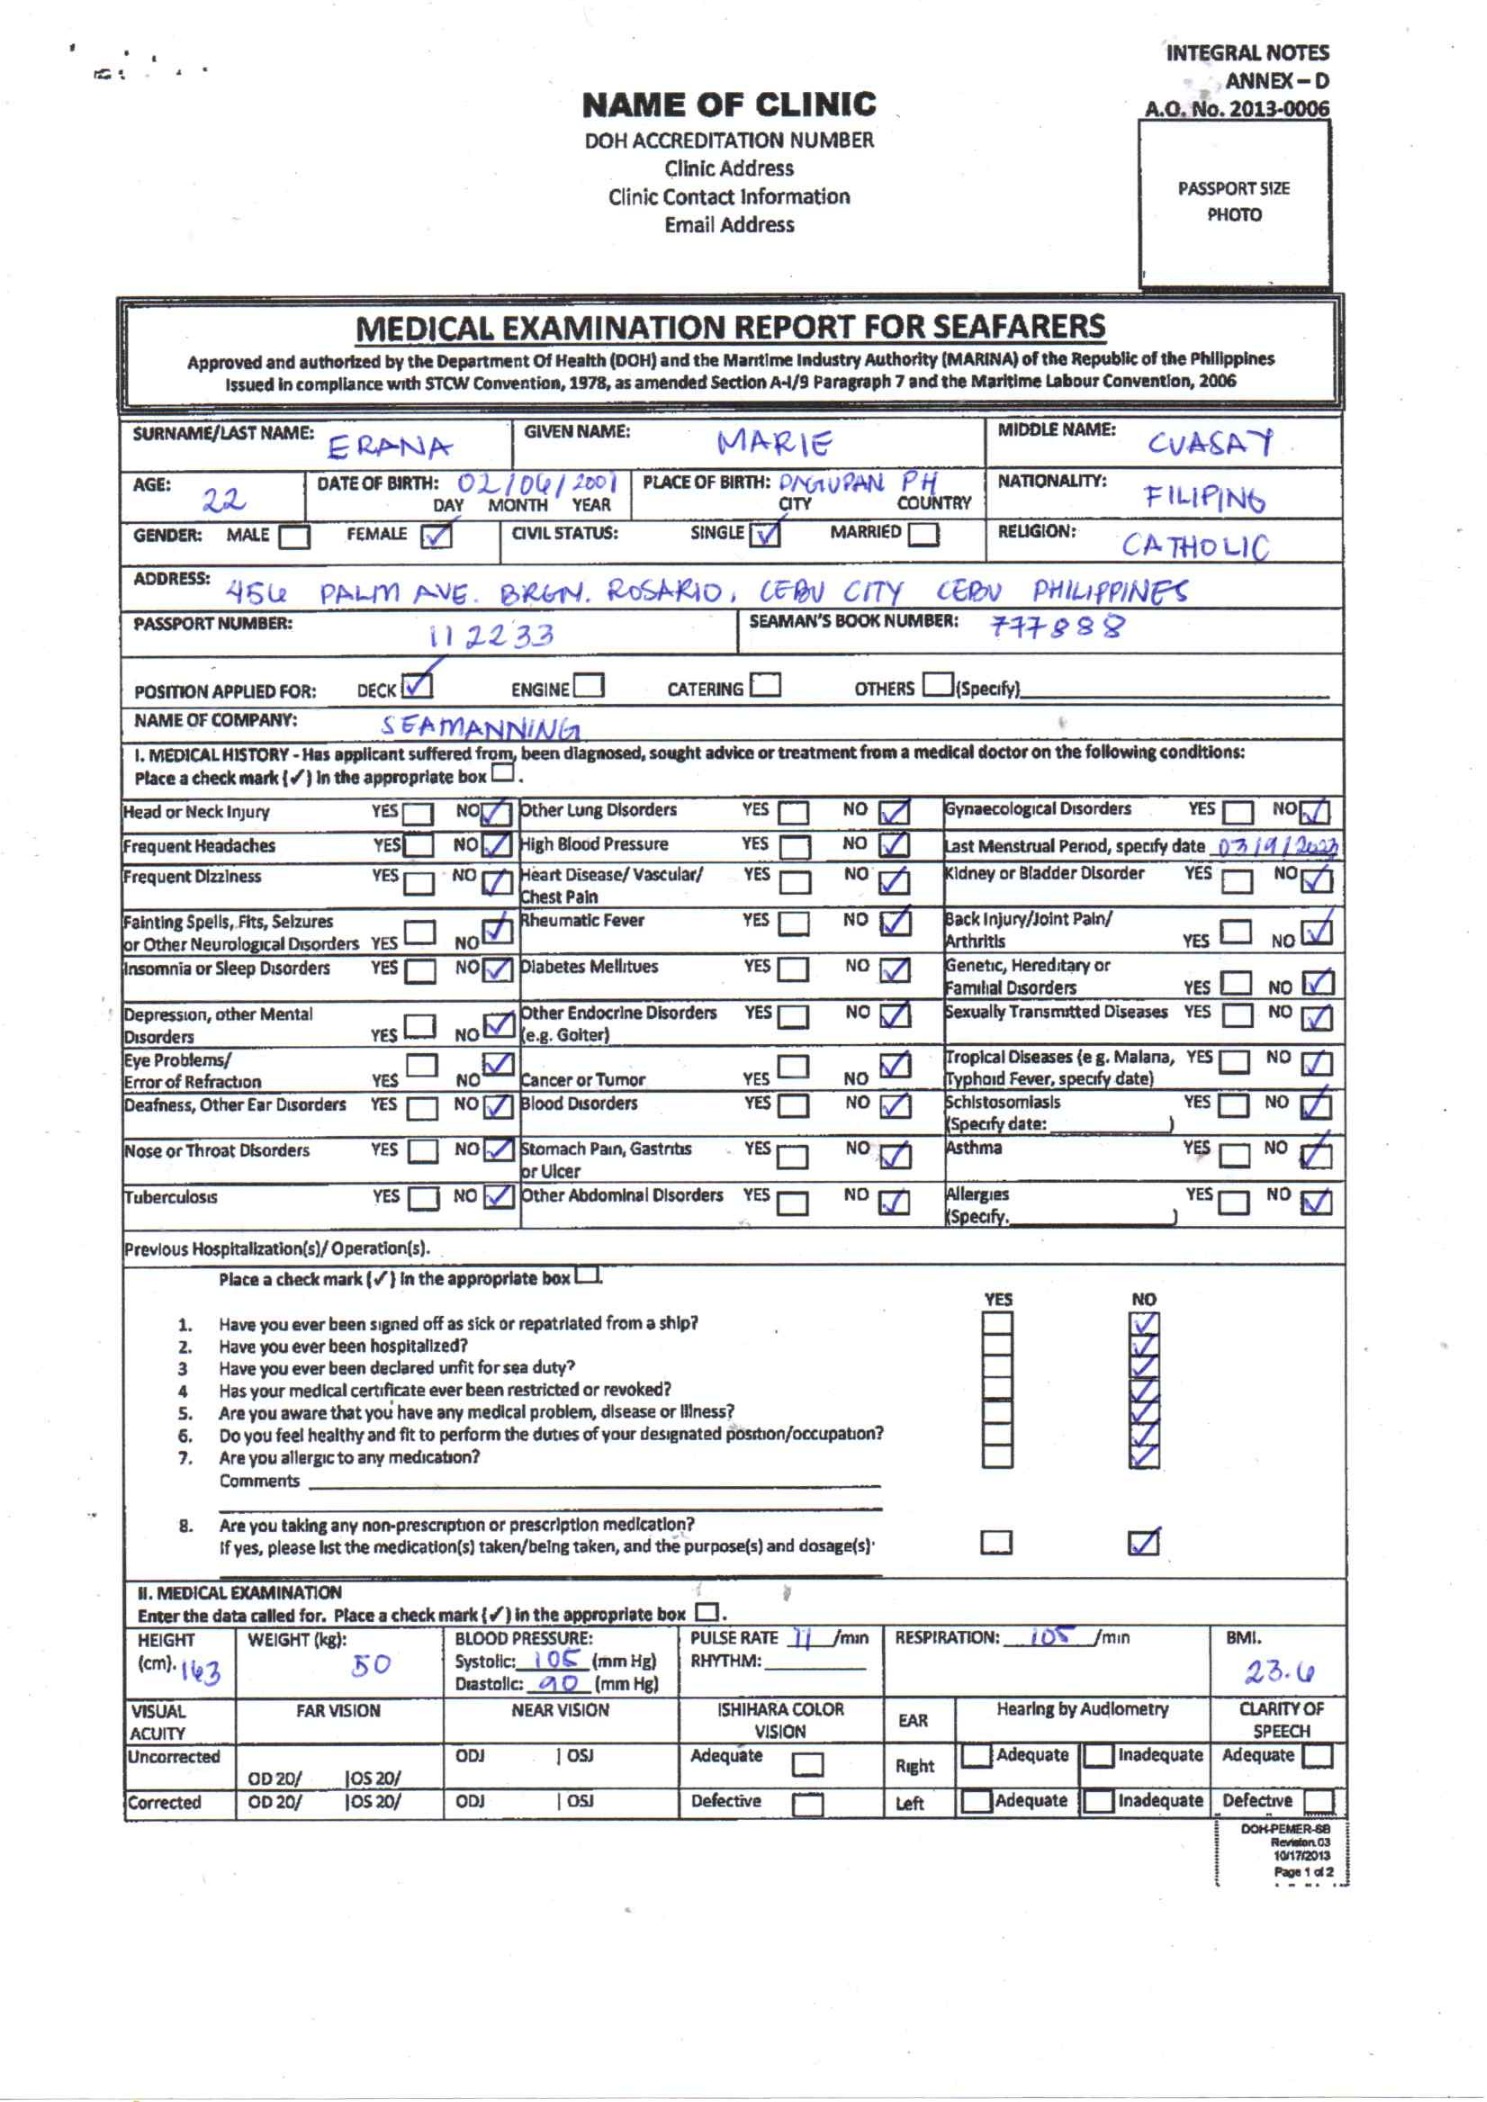 INTEGRAL NOTES
ANNEX – D
A.O. No. 2013-0006
NAME OF CLINIC
DOH ACCREDITATION NUMBER
Clinic Address
Clinic Contact Information
Email Address
PASSPORT SIZE
PHOTO
MEDICAL EXAMINATION REPORT FOR SEAFARERS
Approved and authorized by the Department Of Health (DOH) and the Maritime Industry Authority (MARINA) of the Republic of the Philippines
Issued in compliance with STCW Convention, 1978, as amended Section A-I/9 Paragraph 7 and the Maritime Labour Convention, 2006
SURNAME/LAST NAME: ERANA GIVEN NAME: MARIE MIDDLE NAME: CUASAY
AGE: 22 DATE OF BIRTH: 02/06/2001 PLACE OF BIRTH: DAGUPAN PH NATIONALITY: FILIPINO
DAY MONTH YEAR CITY COUNTRY
GENDER: MALE FEMALE ✓ CIVIL STATUS: SINGLE ✓ MARRIED RELIGION: CATHOLIC
ADDRESS: 456 PALM AVE. BRGY. ROSARIO, CEBU CITY CEBU PHILIPPINES
PASSPORT NUMBER: 112233 SEAMAN'S BOOK NUMBER: 777888
POSITION APPLIED FOR: DECK ✓ ENGINE CATERING OTHERS (Specify)
NAME OF COMPANY: SEAMANNING
I. MEDICAL HISTORY - Has applicant suffered from, been diagnosed, sought advice or treatment from a medical doctor on the following conditions:
Place a check mark (✓) in the appropriate box .
Head or Neck Injury YES NO ✓ Other Lung Disorders YES NO ✓ Gynaecological Disorders YES NO ✓
Frequent Headaches YES NO ✓ High Blood Pressure YES NO ✓ Last Menstrual Period, specify date 03/9/2023
Frequent Dizziness YES NO ✓ Heart Disease/ Vascular/ YES NO ✓ Kidney or Bladder Disorder YES NO ✓
Chest Pain
Fainting Spells, Fits, Seizures Rheumatic Fever YES NO ✓ Back Injury/Joint Pain/
or Other Neurological Disorders YES NO ✓ Arthritis YES NO ✓
Insomnia or Sleep Disorders YES NO ✓ Diabetes Mellitues YES NO ✓ Genetic, Hereditary or
Familial Disorders YES NO ✓
Depression, other Mental Other Endocrine Disorders YES NO ✓ Sexually Transmitted Diseases YES NO ✓
Disorders YES NO ✓ (e.g. Goiter)
Eye Problems/ Tropical Diseases (e g. Malaria, YES NO ✓
Error of Refraction YES NO ✓ Cancer or Tumor YES NO ✓ Typhoid Fever, specify date)
Deafness, Other Ear Disorders YES NO ✓ Blood Disorders YES NO ✓ Schistosomiasis YES NO ✓
(Specify date: )
Nose or Throat Disorders YES NO ✓ Stomach Pain, Gastritis YES NO ✓ Asthma YES NO ✓
or Ulcer
Tuberculosis YES NO ✓ Other Abdominal Disorders YES NO ✓ Allergies YES NO ✓
(Specify. )
Previous Hospitalization(s)/ Operation(s).
Place a check mark (✓) in the appropriate box .
YES NO
1. Have you ever been signed off as sick or repatriated from a ship? ✓
2. Have you ever been hospitalized? ✓
3 Have you ever been declared unfit for sea duty? ✓
4 Has your medical certificate ever been restricted or revoked? ✓
5. Are you aware that you have any medical problem, disease or illness? ✓
6. Do you feel healthy and fit to perform the duties of your designated position/occupation? ✓
7. Are you allergic to any medication? ✓
Comments
8. Are you taking any non-prescription or prescription medication?
If yes, please list the medication(s) taken/being taken, and the purpose(s) and dosage(s)· ✓
II. MEDICAL EXAMINATION
Enter the data called for. Place a check mark (✓) in the appropriate box .
HEIGHT WEIGHT (kg): BLOOD PRESSURE: PULSE RATE 71 /min RESPIRATION: 105 /min BMI.
(cm). 163 50 Systolic: 105 (mm Hg) RHYTHM: 23.6
Diastolic: 90 (mm Hg)
VISUAL FAR VISION NEAR VISION ISHIHARA COLOR EAR Hearing by Audiometry CLARITY OF
ACUITY VISION SPEECH
Uncorrected ODJ | OSJ Adequate Right Adequate Inadequate Adequate
OD 20/ |OS 20/
Corrected OD 20/ |OS 20/ ODJ | OSJ Defective Left Adequate Inadequate Defective
DOH-PEMER-SB
Revision.03
10/17/2013
Page 1 of 2